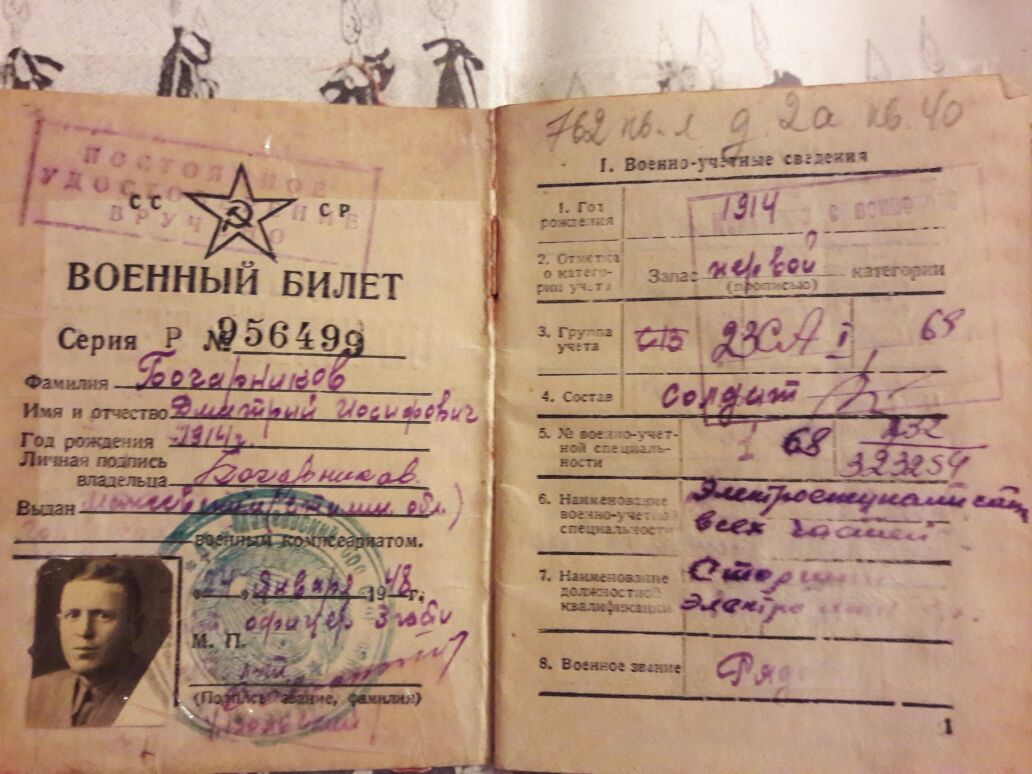 ПОСТОЯННОЕ
УДОСТОВЕРЕНИЕ
ВРУЧЕНО
СС СР
ВОЕННЫЙ БИЛЕТ
Серия Р № 956499
Фамилия Бочарников
Имя и отчество Дмитрий Иосифович
Год рождения 1914г.
Личная подпись
владельца Бочарников
Выдан обл.)
военным комиссариатом.
"24" января 1948г.
офицер 3
М. П.
(Подпись, звание, фамилия)
762 кв. л д. 2а кв. 40
I. Военно-учетные сведения
1. Год
рождения 1914
2. Отметка
о катего-
рии учета Запас первой категории
(прописью)
3. Группа
учета 23СА I 68
4. Состав солдат
5. № военно-учет-
ной специаль-
ности 1 68 132
323254
6. Наименование
военно-учетной
специальности
всех частей
7. Наименование
должностной
квалификации
8. Военное звание Ряд
1